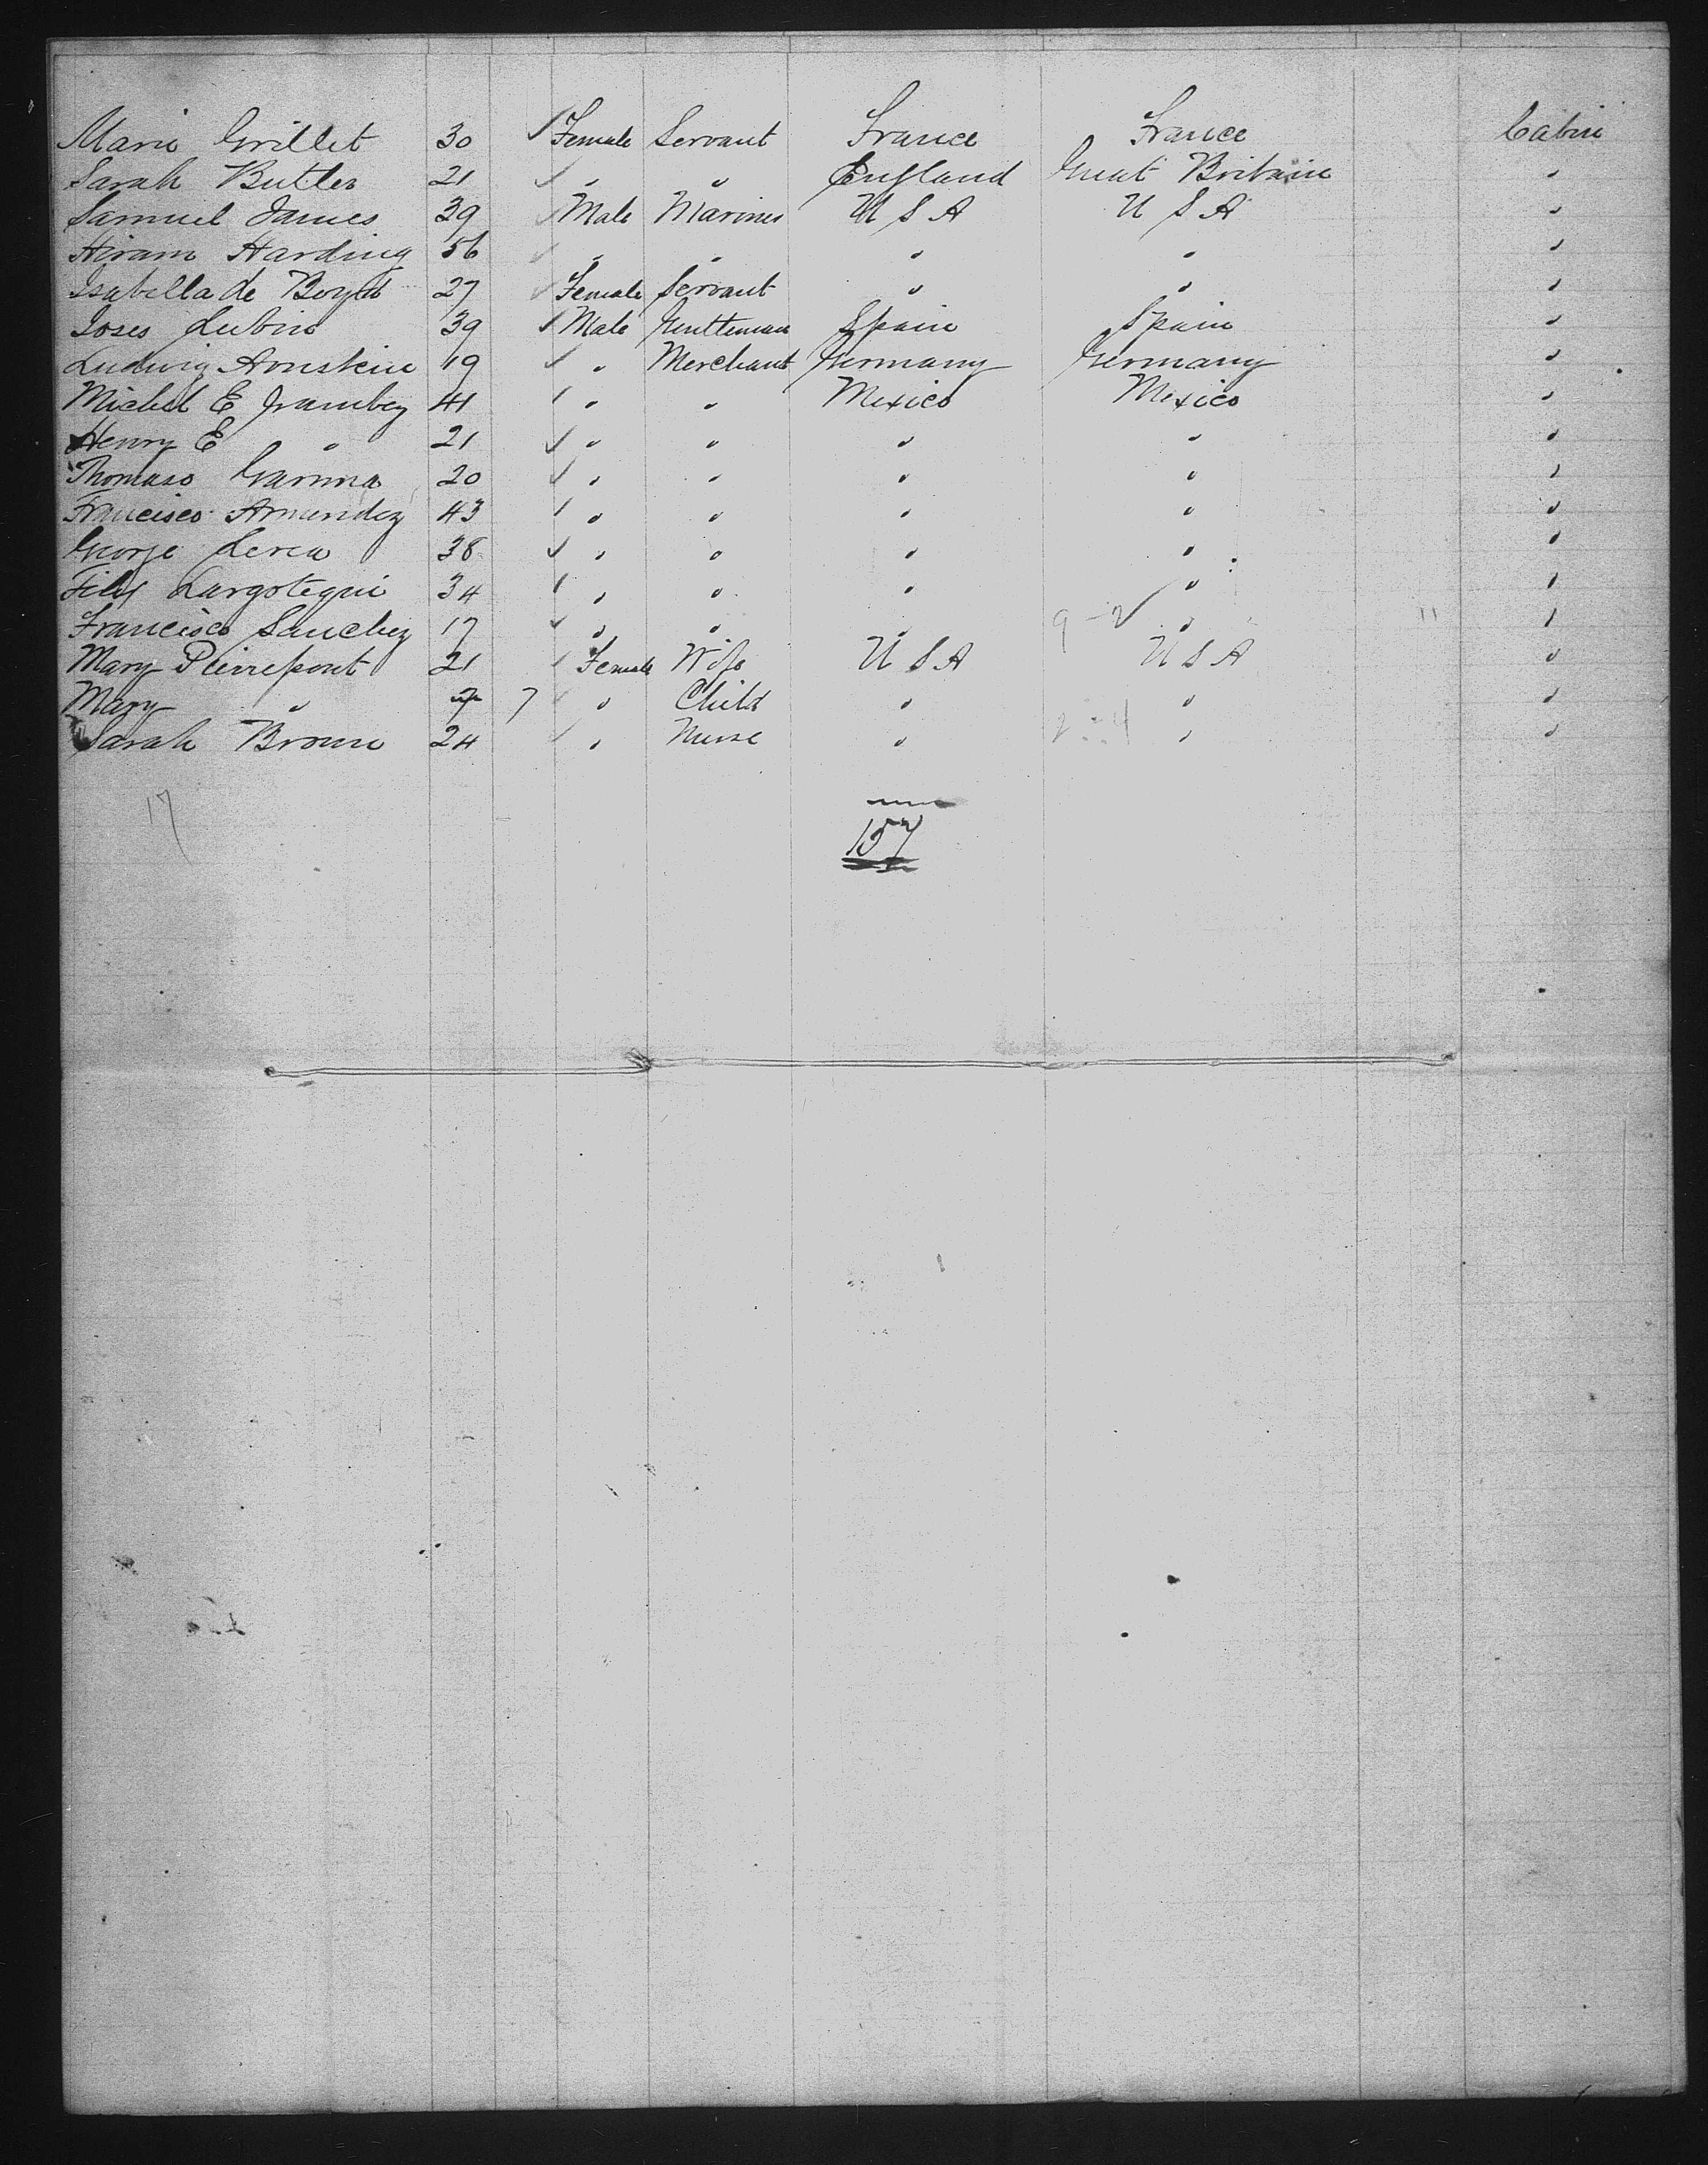 Marie Grillet 30 ✓ Female Servant France France Cabin
Sarah Butler 21 ✓ " " England Great Britain "
Samuel James 39 ✓ Male Mariner U S A U S A "
Hiram Harding 56 ✓ " " " " "
Isabella de Boyd 27 ✓ Female Servant " " "
Joses Lubin 39 ✓ Male Gentleman Spain Spain "
Ludwig Arnstein 19 ✓ " Merchant Germany Germany "
Michel E 41 ✓ " " Mexico Mexico "
Henry E " 21 ✓ " " " " "
Thomaso 20 ✓ " " " " "
Francisco Armendez 43 ✓ " " " " "
George 38 ✓ " " " " "
Felix Largotegui 34 ✓ " " " " "
Francisco Sanchez 17 ✓ " " " 9-2 " "
Mary Pierrepont 21 ✓ Female Wife U S A U S A "
Mary " 7 ✓ " Child " " "
Sarah Brown 24 ✓ " Nurse " " "
17
157